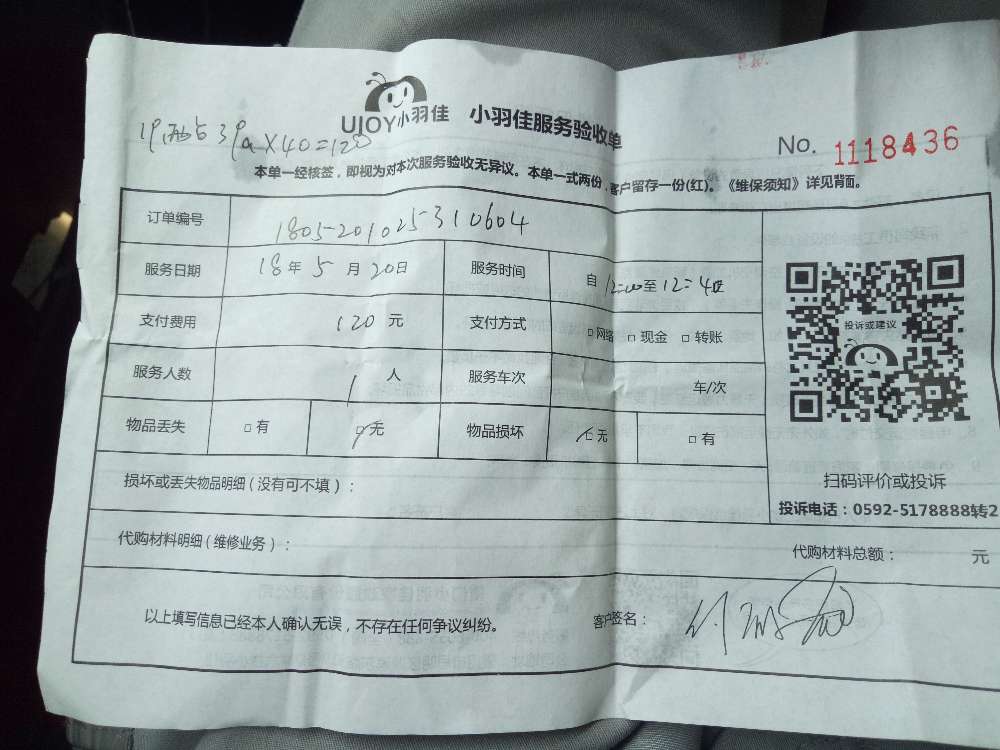 UJOY小羽佳 小羽佳服务验收单
X40=120
No. 1118436
本单一经核签，即视为对本次服务验收无异议。本单一式两份，客户留存一份(红)。《维保须知》详见背面。
订单编号 1805201025310604
服务日期 18年5月20日 服务时间 自12:00至12:40
支付费用 120元 支付方式 □网络 □现金 □转账
服务人数 1人 服务车次 车/次
物品丢失 □有 □无 物品损坏 □无 □有
投诉或建议
扫码评价或投诉
投诉电话：0592-5178888转2
损坏或丢失物品明细(没有可不填)：
代购材料明细(维修业务)： 代购材料总额： 元
以上填写信息已经本人确认无误，不存在任何争议纠纷。 客户签名：